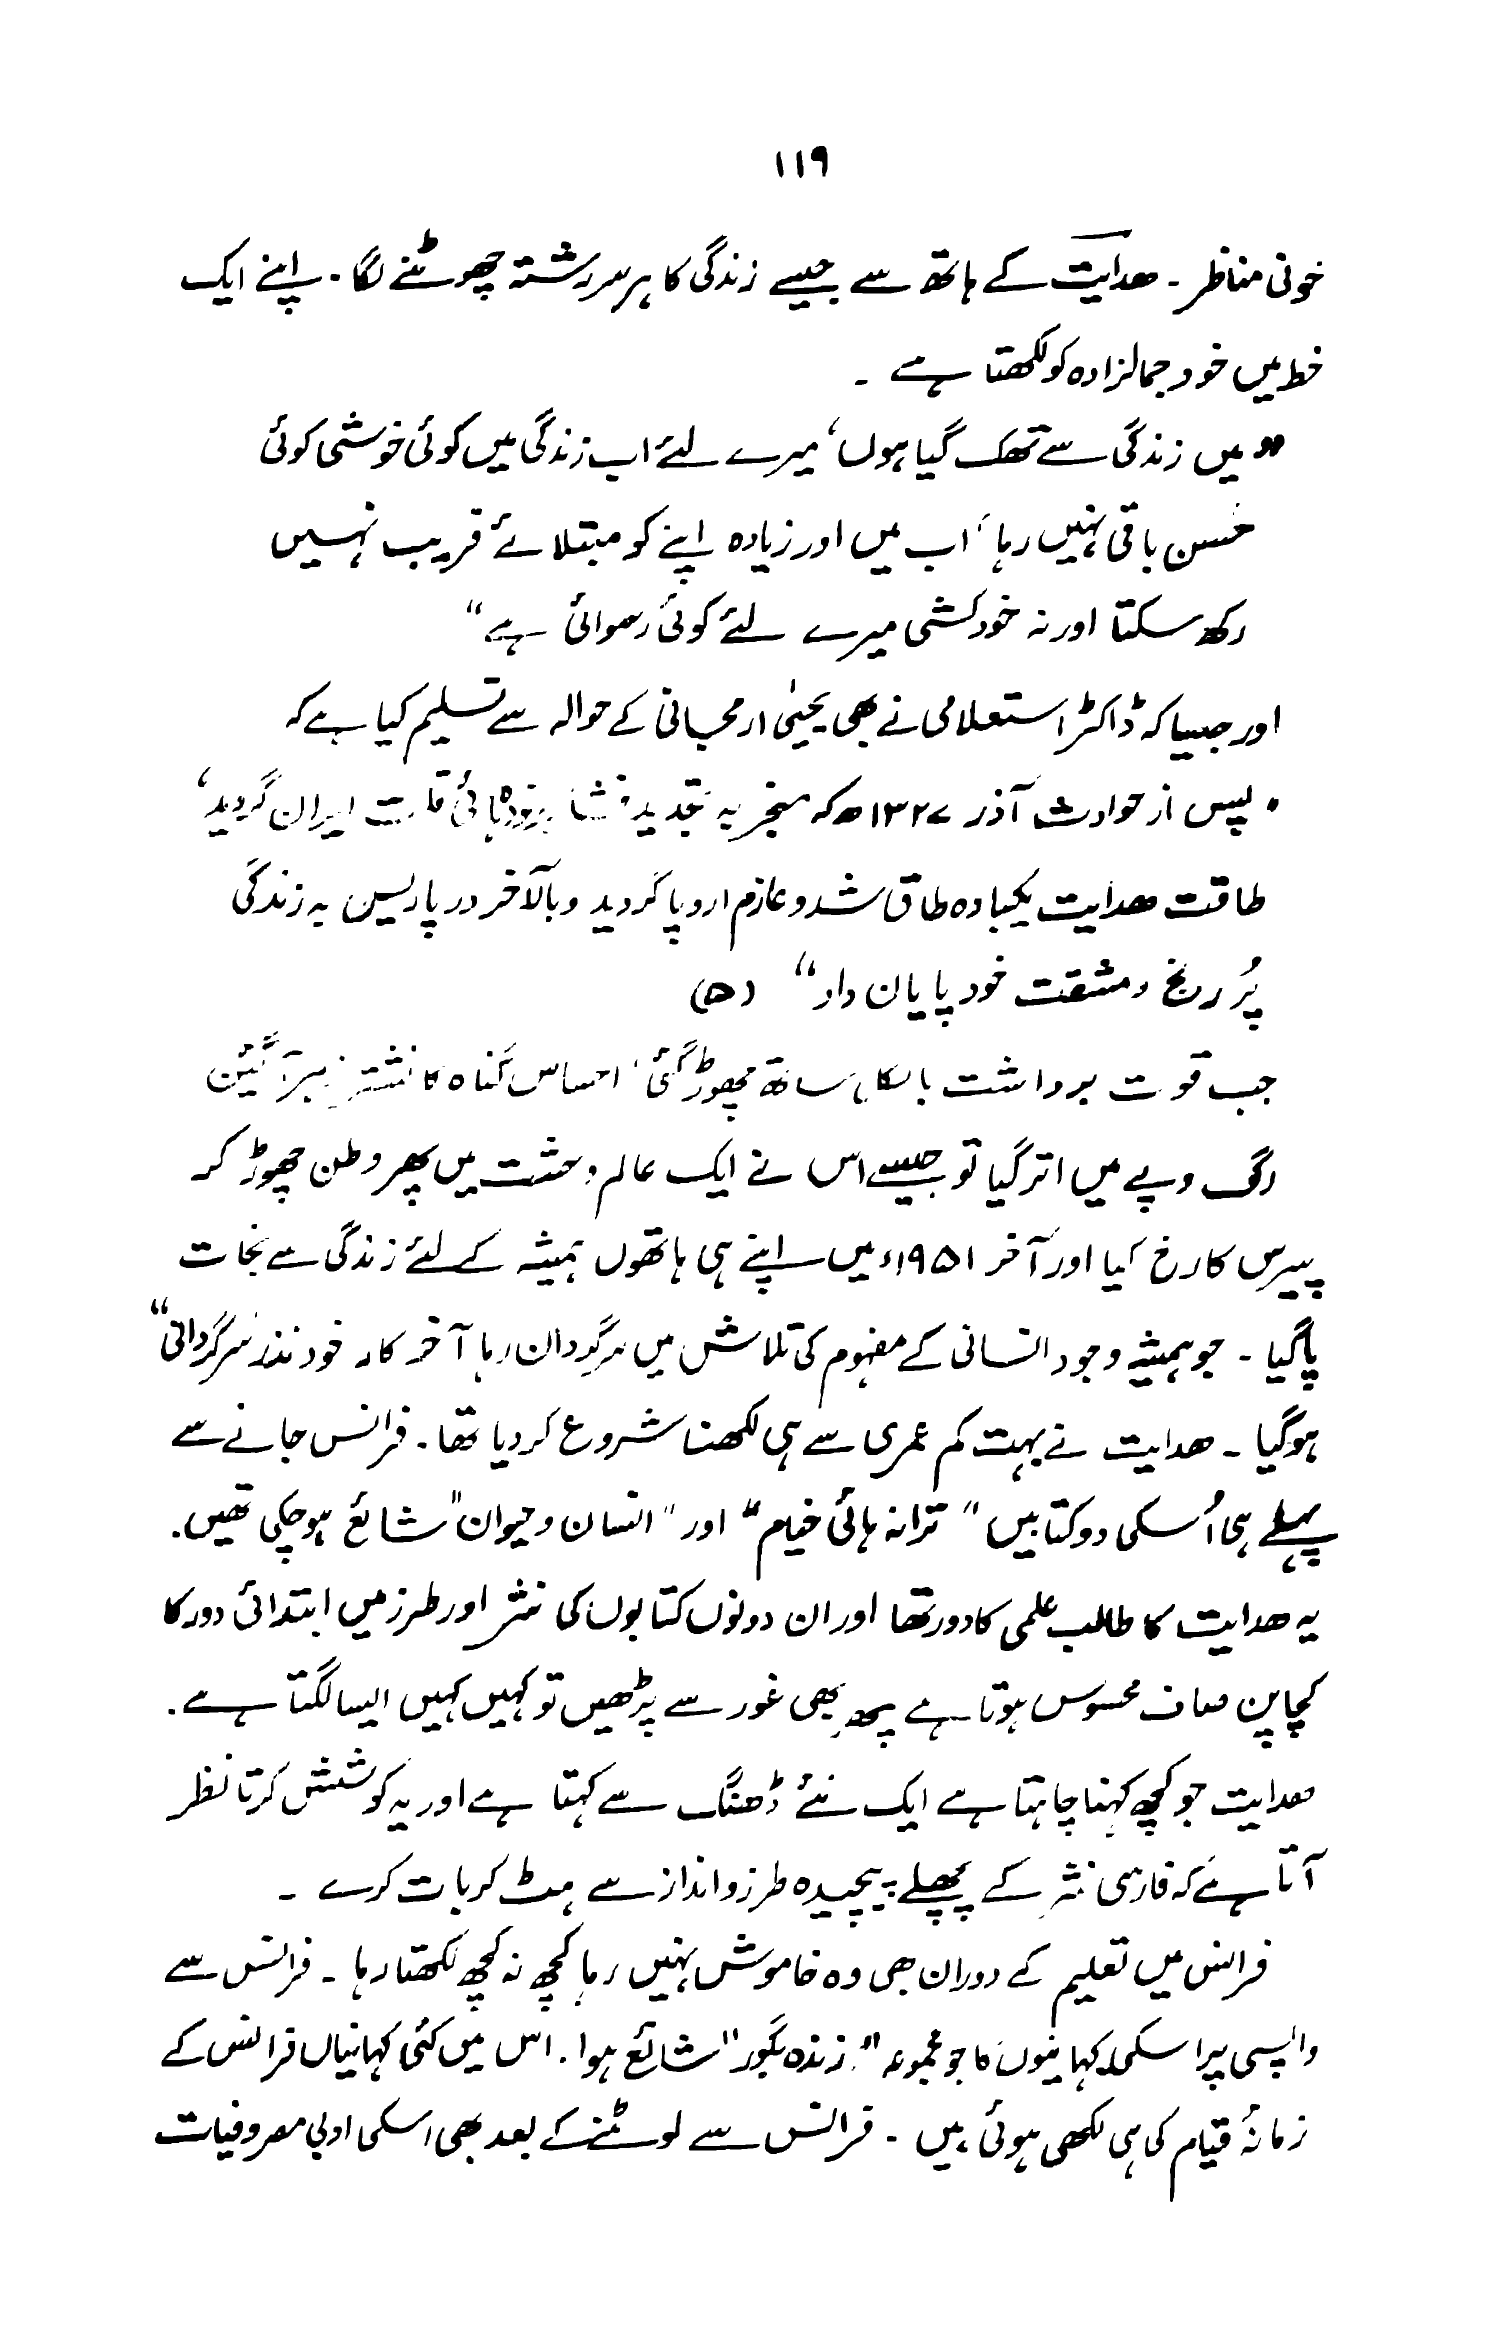 ۱۱۹
خونی مناظر ۔ ھدایت کے ہاتھ سے جیسے زندگی کا ہر سررشتہ چھوٹنے لگا ۔ اپنے ایک
خط میں خود جمالزادہ کو لکھتا ہے ۔
"میں زندگی سے تھک گیا ہوں، میرے لئے اب زندگی میں کوئی خوشی کوئی
حُسن باقی نہیں رہا، اب میں اور زیادہ اپنے کو مبتلائے فریب نہیں
رکھ سکتا اور نہ خودکشی میرے لئے کوئی رسوائی ہے"
اور جیسا کہ ڈاکٹر استعلامی نے بھی یحییٰ ارمحبانی کے حوالہ سے تسلیم کیا ہے کہ
"پس از حوادث آذر ۱۳۲۷ھ کہ منجر بہ تجدید ایران گردید،
طاقت ھدایت یکبارہ طاق شد و عازم اروپا گردید و بالآخر در پاریس بہ زندگی
پُر رنج و مشقت خود پایان داد" (۵)
جب قوت برداشت بالکل ساتھ چھوڑ گئی، احساس گناہ کا نشتر
رگ و پے میں اتر گیا تو جیسے اس نے ایک عالم وحشت میں پھر وطن چھوڑ کر
پیرس کا رخ کیا اور آخر ۱۹۵۱ء میں اپنے ہی ہاتھوں ہمیشہ کے لئے زندگی سے نجات
پا گیا ۔ جو ہمیشہ وجود انسانی کے مفہوم کی تلاش میں سرگرداں رہا آخر کار خود نذر سرگردانی"
ہو گیا ۔ ھدایت نے بہت کم عمری سے ہی لکھنا شروع کر دیا تھا ۔ فرانس جانے سے
پہلے ہی اُسکی دو کتابیں "ترانہ ہائی خیام" اور "انسان و حیوان" شائع ہو چکی تھیں ۔
یہ ھدایت کا طالب علمی کا دور تھا اور ان دونوں کتابوں کی نثر اور طرز میں ابتدائی دور کا
کچا پن صاف محسوس ہوتا ہے پھر بھی غور سے پڑھیں تو کہیں کہیں ایسا لگتا ہے ۔
ھدایت جو کچھ کہنا چاہتا ہے ایک نئے ڈھنگ سے کہتا ہے اور یہ کوشش کرتا نظر
آتا ہے کہ فارسی نثر کے پچھلے پیچیدہ طرز و انداز سے ہٹ کر بات کرے ۔
فرانس میں تعلیم کے دوران بھی وہ خاموش نہیں رہا کچھ نہ کچھ لکھتا رہا ۔ فرانس سے
واپسی پر اسکی کہانیوں کا جو مجموعہ "زندہ بگور" شائع ہوا ۔ اس میں کئی کہانیاں فرانس کے
زمانۂ قیام کی ہی لکھی ہوئی ہیں ۔ فرانس سے لوٹنے کے بعد بھی اسکی ادبی مصروفیات